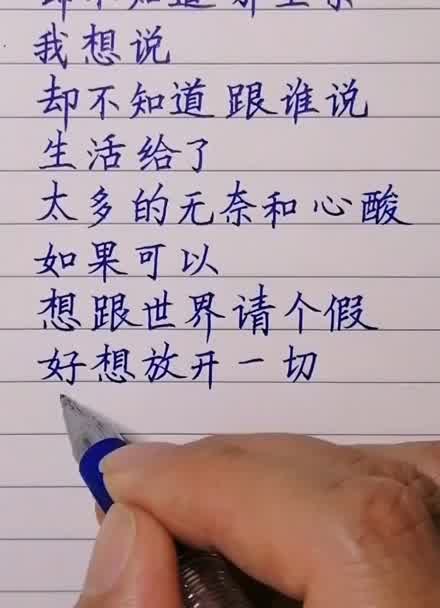 却不知道
我想说
却不知道 跟谁说
生活给了
太多的无奈和心酸
如果可以
想跟世界请个假
好想放开一切